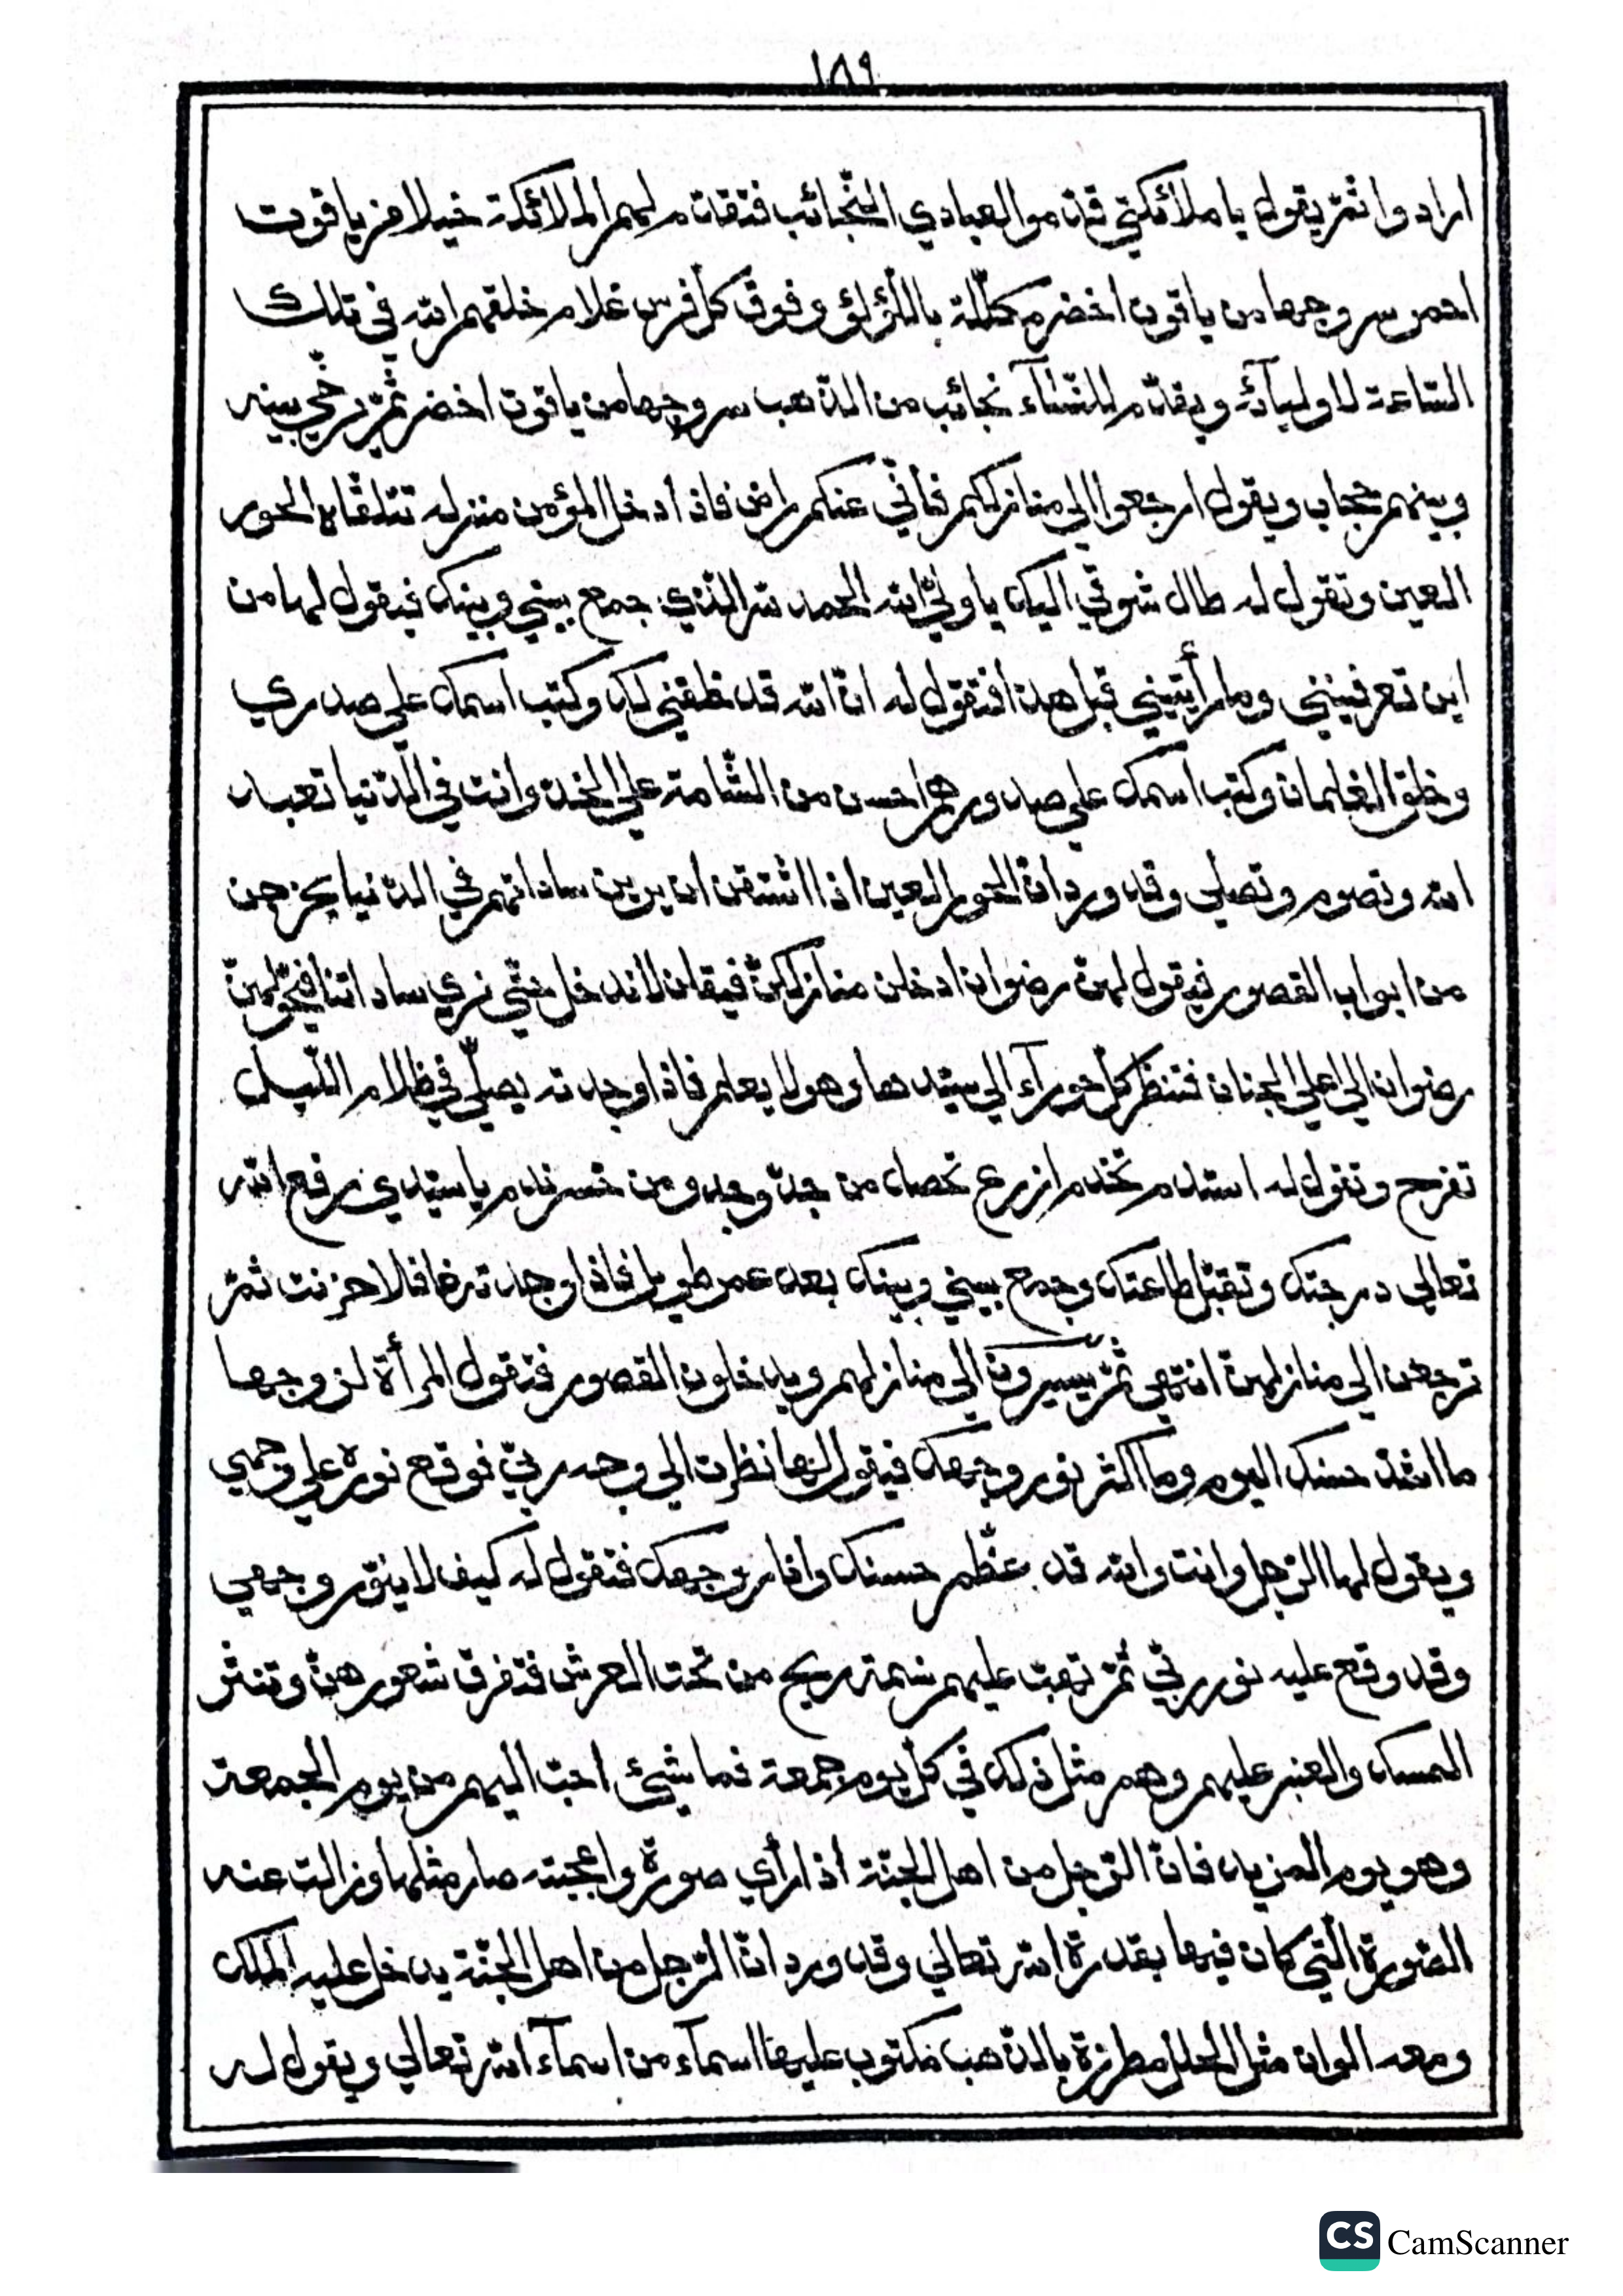 ١٥٩
ارادوا ثمّ يقول يا ملائكتي قدموا لعبادي النّجائب فتقدم لهم الملائكة خيلا من ياقوت
احمر سروجها من ياقوت اخضر مكلّلة باللّؤلؤ و فوق كلّ فرس غلام خلقهم الله في تلك
السّاعة لاوليآئه ويقدّم للنّسآء نجائب من الذّهب سروجها من ياقوت اخضر ثمّ يرخّي بينه
وبينهم حجاب ويقول ارجعوا الى منازلكم فأنّي عنكم راض فاذا دخل المؤمن منزله تتلقّاه الحور
العين وتقول له طال شوقي اليك يا وليّ الله الحمد لله الّذي جمع بيني وبينك فيقول لها من
اين تعرفينني وما رأيتيني قبل هذا فتقول له انّ الله قد خلقني لك وكتب اسمك على صدري
وخلق الغلمان وكتب اسمك على صدورهم احسن من الشّامة على الخدّ وانت في الدّنيا تعبد
الله وتصوم وتصلي وقد ورد انّ الحور العين اذا اشتقن ان يرين ساداتهم في الدّنيا يخرجن
من ابواب القصور فيقول لهنّ رضوان ادخلن منازلكنّ فيقلن لا ندخل حتّى نرى ساداتنا فيحوّلهنّ
رضوان الى اعلى الجنان فتنظر كلّ حورآء الى سيّدها وهو لا يعلم فاذا وجدته يصلّي في ظلام اللّيل
تفرح وتقول له استدم تخدم ازرع تحصد من جدّ وجد ومن خسر ندم يا سيّدي رفع الله
تعالى درجتك وتقبّل طاعتك وجمع بيني وبينك بعد عمر طويل فاذا وجدته غافلا حزنت ثمّ
ترجعن الى منازلهنّ انتهى ثمّ يسيرون الى منازلهم ويدخلون القصور فتقول المرأة لزوجها
ما اشدّ حسنك اليوم وما اكثر نور وجهك فيقول لها نظرت الى وجه ربّي فوقع نوره على وجهي
ويقول لها الرّجل وانت والله قد عظّم حسنك وانار وجهك فتقول له كيف لا ينوّر وجهي
وقد وقع عليه نور ربّي ثمّ تهبّ عليهم نسمة ريح من تحت العرش فتفرق شعورهنّ وتنثر
المسك والعنبر عليهم وهم مثل ذلك في كلّ يوم جمعة فما شيئ احبّ اليهم من يوم الجمعة
وهو يوم المزيد فانّ الرّجل من اهل الجنّة اذا رأى صورة واعجبته صار مثلها وزالت عنه
الصّورة الّتي كان فيها بقدرة الله تعالى وقد ورد انّ الرّجل من اهل الجنّة يدخل عليه الملك
ومعه الوان مثل الحلل مطرزة بالذّهب مكتوب عليها اسمآء من اسمآء الله تعالى ويقول له
CS CamScanner